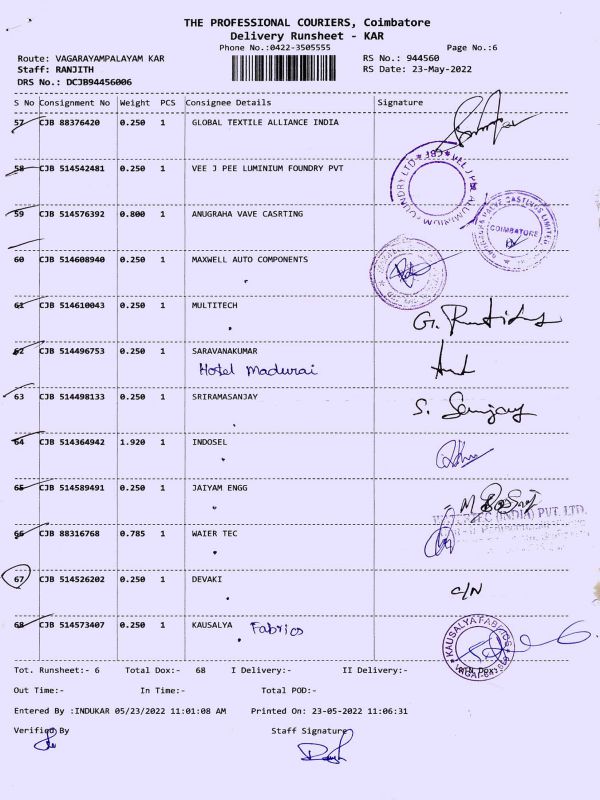 THE PROFESSIONAL COURIERS, Coimbatore
Delivery Runsheet - KAR
Phone No.:0422-3505555
Page No.:6
Route: VAGARAYAMPALAYAM KAR
RS No.: 944560
Staff: RANJITH
RS Date: 23-May-2022
DRS No.: DCJB94456006
S No Consignment No Weight PCS Consignee Details Signature
57 CJB 88376420 0.250 1 GLOBAL TEXTILE ALLIANCE INDIA
58 CJB 514542481 0.250 1 VEE J PEE LUMINIUM FOUNDRY PVT
59 CJB 514576392 0.800 1 ANUGRAHA VAVE CASRTING
COIMBATORE
60 CJB 514608940 0.250 1 MAXWELL AUTO COMPONENTS
61 CJB 514610043 0.250 1 MULTITECH
62 CJB 514496753 0.250 1 SARAVANAKUMAR
Hotel Madurai
63 CJB 514498133 0.250 1 SRIRAMASANJAY
S. Sanjay
64 CJB 514364942 1.920 1 INDOSEL
65 CJB 514589491 0.250 1 JAIYAM ENGG
(INDIA) PVT. LTD.
66 CJB 88316768 0.785 1 WAIER TEC
67 CJB 514526202 0.250 1 DEVAKI
C/N
68 CJB 514573407 0.250 1 KAUSALYA Fabrics
KAUSALYA FABRICS
Tot. Runsheet:- 6 Total Dox:- 68 I Delivery:- II Delivery:-
Out Time:- In Time:- Total POD:-
Entered By :INDUKAR 05/23/2022 11:01:08 AM Printed On: 23-05-2022 11:06:31
Verified By Staff Signature